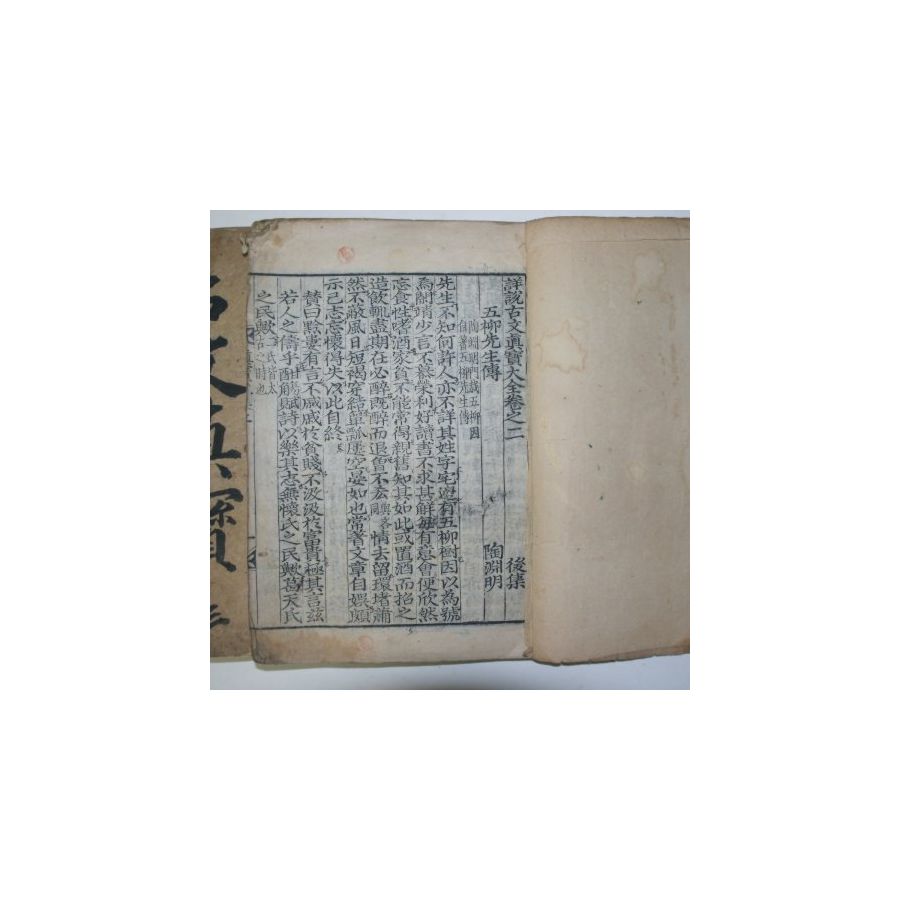 詳說古文眞寶大全卷之二 後集
五柳先生傳 陶淵明
陶淵明門栽五柳因
自著五柳先生傳
先生不知何許人亦不詳其姓字宅邊有五柳樹因以為號
焉閑靖少言不慕榮利好讀書不求甚解每有意會便欣然
忘食性嗜酒家貧不能常得親舊知其如此或置酒而招之
造飮輒盡期在必醉旣醉而退曾不吝情去留環堵蕭
然不蔽風日短褐穿結簞瓢屢空晏如也常著文章自娛頗
示己志忘懷得失以此自終
贊曰黔婁有言不戚戚於貧賤不汲汲於富貴極其言玆
若人之儔乎酣觴賦詩以樂其志無懷氏之民歟葛天氏
之民歟
古文眞寶